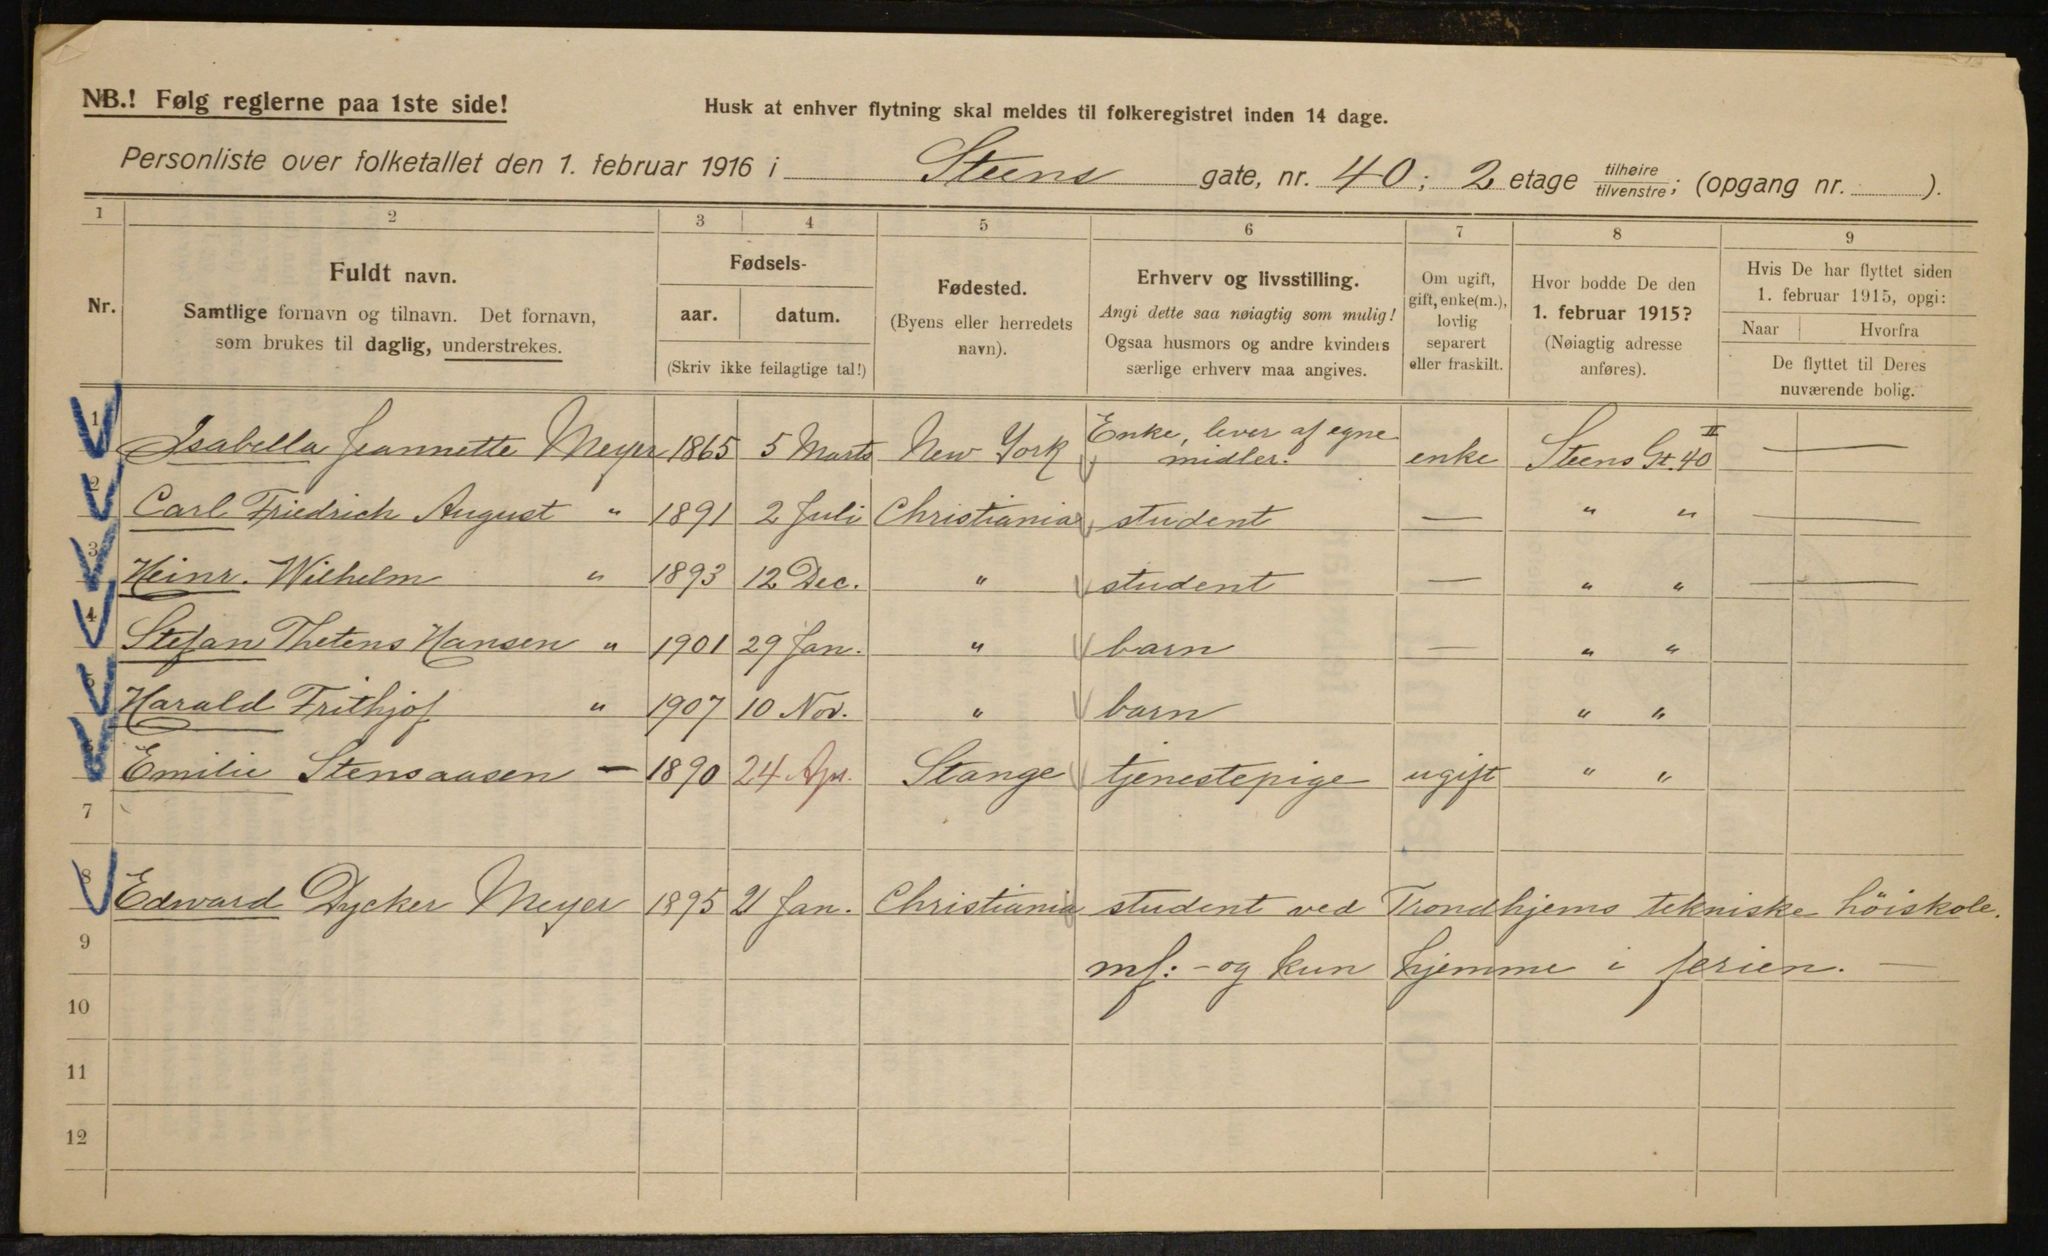 NB.! Følg reglerne paa 1ste side!
Husk at enhver flytning skal meldes til folkeregistret inden 14 dage.
Personliste over folketallet den 1. februar 1916 i Steens gate, nr. 40; 2 etage tilhøire tilvenstre; (opgang nr. ).
1 2 3 4 5 6 7 8 9
Nr.
Fuldt navn.
Samtlige fornavn og tilnavn. Det fornavn,
som brukes til daglig, understrekes.
Fødsels-
aar. datum.
(Skriv ikke feilagtige tal!)
Fødested.
(Byens eller herredets
navn).
Erhverv og livsstilling.
Angi dette saa nøiagtig som mulig!
Ogsaa husmors og andre kvinders
særlige erhverv maa angives.
Om ugift,
gift, enke(m.),
lovlig
separert
eller fraskilt.
Hvor bodde De den
1. februar 1915?
(Nøiagtig adresse
anføres).
Hvis De har flyttet siden
1. februar 1915, opgi:
Naar Hvorfra
De flyttet til Deres
nuværende bolig.
1 Isabella Jeannette Meyer 1865 5 Marts New York Enke, lever af egne midler. enke Steens Gt. 40 II — —
2 Carl Friedrich August " 1891 2 Juli Christiania student — " " —
3 Heinr. Wilhelm " 1893 12 Dec. " student — " " —
4 Stefan Thetens Hansen " 1901 29 Jan. " barn — " "
5 Harald Frithjof " 1907 10 Nov. " barn " "
6 Emilie Stensaasen — 1890 24 Apr. Stange tjenestepige ugift " "
7
8 Edward Dycker Meyer 1895 21 Jan. Christiania student ved Trondhjems tekniske höiskole.
9 mf: - og kun hjemme i ferien. —
10
11
12